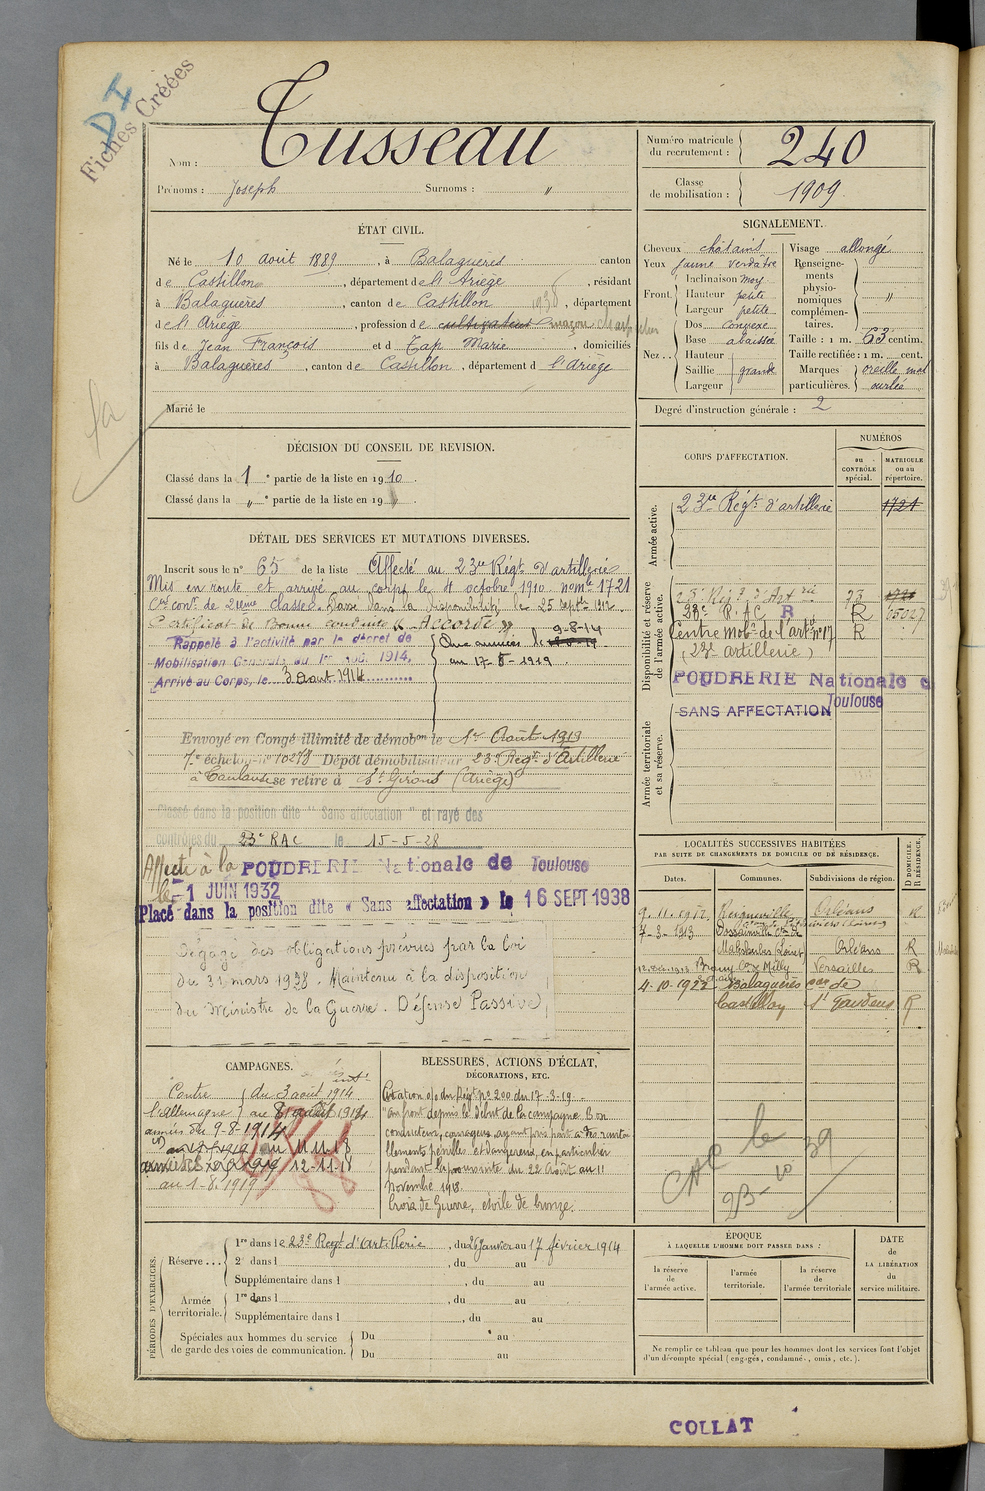 DI
Fiches Créées
Nom : Tusseau
Prénoms : Joseph Surnoms : "
Numéro matricule du recrutement : 240
Classe de mobilisation : 1909
ÉTAT CIVIL.
Né le 10 août 1889, à Balaguères canton
de Castillon, département de l'Ariège, résidant
à Balaguères, canton de Castillon, département
de l'Ariège, profession de cultivateur maçon
fils de Jean François et de Tap Marie, domiciliés
à Balaguères, canton de Castillon, département d l'Ariège
Marié le
SIGNALEMENT.
Cheveux châtains
Yeux jaune verdâtre
Front. Inclinaison moy
Hauteur petite
Largeur petite
Nez.. Dos convexe
Base abaissée
Hauteur
Saillie grande
Largeur
Visage allongé
Renseignements physionomiques complémentaires. "
Taille : 1 m. 63 centim.
Taille rectifiée : 1 m. cent.
Marques particulières. oreille mal ourlée
Degré d'instruction générale : 2
DÉCISION DU CONSEIL DE REVISION.
Classé dans la 1e partie de la liste en 1910.
Classé dans la " e partie de la liste en 19 "
DÉTAIL DES SERVICES ET MUTATIONS DIVERSES.
Inscrit sous le n° 65 de la liste Affecté au 23me Régt d'artillerie
Mis en route et arrivé au corps le 4 octobre 1910. nom le 1721
Cer cond. de 2ème classe. Passé dans la disponibilité le 25 septbre 1912.
Certificat de Bonne conduite "Accordé"
Rappelé à l'activité par le décret de
Mobilisation Générale du 1er août 1914,
Arrivé au Corps, le 3 août 1914
Aux armées le 9-8-14
au 17-8-1919
Envoyé en Congé illimité de démobon le 1er Août 1919
7e échelon n° 10273 Dépôt démobilisateur 23e Régt d'Artillerie
à Toulouse se retire à St Girons (Ariège)
Classé dans la position dite "Sans affectation" et rayé des
contrôles du 23e RAC le 15-5-28
Affecté à la POUDRERIE Nationale de Toulouse
le -1 JUIN 1932
Placé dans la position dite « Sans affectation » le 16 SEPT 1938
Dégagé des obligations prévues par la loi
du 31 mars 1928. Maintenu à la disposition
du Ministre de la Guerre. Défense Passive
CORPS D'AFFECTATION.
NUMÉROS
au CONTRÔLE spécial.
MATRICULE ou au répertoire.
Armée active.
23me Régt d'artillerie 1721
Disponibilité et réserve de l'armée active.
23e Régt d'Artrie 73 1721
28e R.A.C R R
Centre mobre de l'artie n° 17 R
(23e artillerie)
POUDRERIE Nationale d
Toulouse
SANS AFFECTATION
Armée territoriale et sa réserve.
LOCALITÉS SUCCESSIVES HABITÉES
PAR SUITE DE CHANGEMENTS DE DOMICILE OU DE RÉSIDENCE.
Dates. Communes. Subdivisions de région.
D DOMICILE. R RÉSIDENCE.
9.11.1912. Orléans R
7-3-1913 Dossainville
Malesherbes Loiret Orléans R
Milly Versailles R
4.10.1922 Balaguères con de
Castillon St Gaudens R
CAMPAGNES.
Contre l'Allemagne
du 3 août 1914
au 8 août 1914
armées du 9-8-1914
au 11-11-18
12-11-18
au 1-8-1919
BLESSURES, ACTIONS D'ÉCLAT,
DÉCORATIONS, ETC.
Citation o/o du Régt n° 200 du 17-3-19
"au front depuis le début de la campagne. Bon
conducteur, courageux ayant pris part à des ravitaillements pénibles et dangereux, en particulier
pendant la poursuite du 22 Août au 11
Novembre 1918.
Croix de Guerre, étoile de bronze.
CAC le
23-10 39
PÉRIODES D'EXERCICES.
Réserve... 1re dans le 23e Régt d'Artillerie, du 26 janvier au 17 février 1914
2e dans l , du au
Supplémentaire dans l , du au
Armée territoriale. 1re dans l , du au
Supplémentaire dans l , du au
Spéciales aux hommes du service de garde des voies de communication. Du au
Du au
ÉPOQUE
À LAQUELLE L'HOMME DOIT PASSER DANS :
la réserve de l'armée active.
l'armée territoriale.
la réserve de l'armée territoriale
DATE de LA LIBÉRATION du service militaire.
Ne remplir ce tableau que pour les hommes dont les services font l'objet
d'un décompte spécial (engagés, condamnés, omis, etc.).
COLLAT